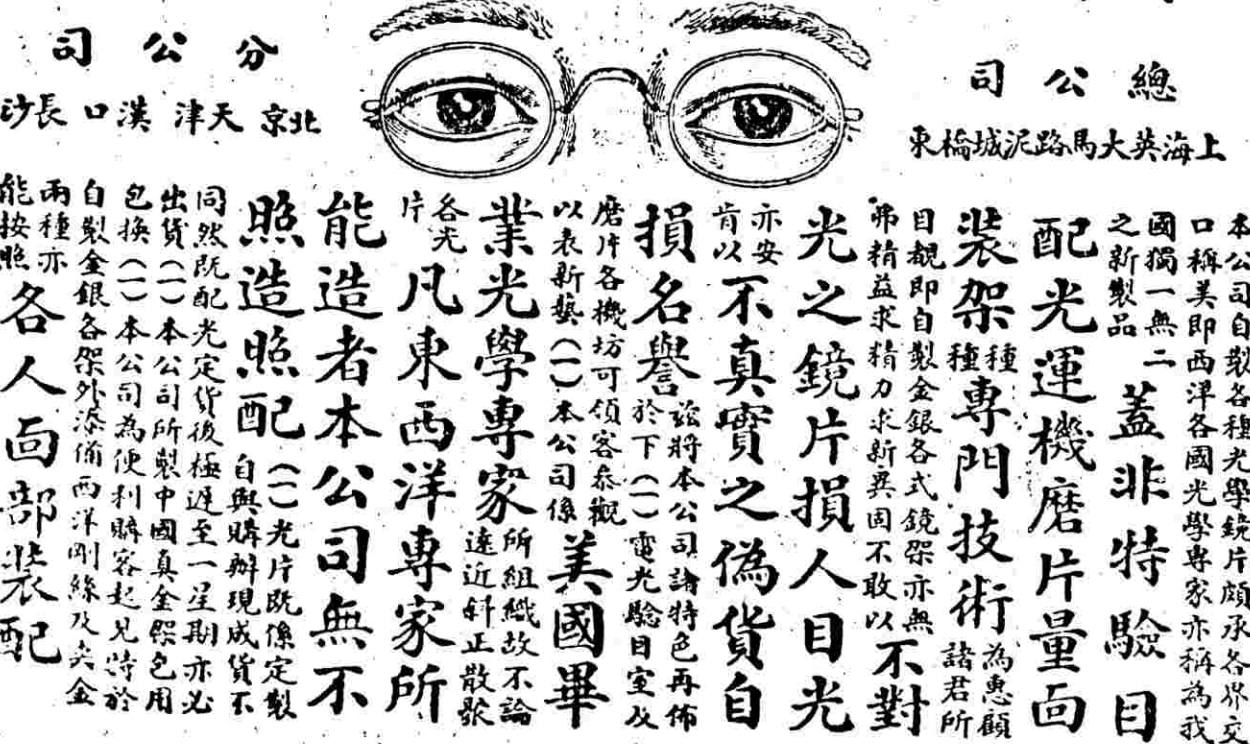 總公司
上海英大馬路泥城橋東
分公司
北京 天津 漢口 長沙
本公司自製各種光學鏡片頗承各界交
口稱美即西洋各國光學專家亦稱為我
國獨一無二
之新製品
蓋非特驗目
配光運機磨片量面
裝架
種種
專門技術
為惠顧
諸君所
目覩即自製金銀各式鏡架亦無
弗精益求精力求新異固不敢以
不對
光之鏡片損人目光
亦安
肯以
不真實之偽貨自
損名譽
茲將本公司諸特色再佈
於下(一)電光驗目室及
磨片各機坊可領客參觀
以表新藝(一)本公司係
美國畢
業光學專家
所組織故不論
遠近斜正散
各光
片
凡東西洋專家所
能造者本公司無不
照造照配
(一)光片既係定製
自與購辦現成貨不
同然既配光定貨後極遲至一星期亦必
出貨(一)本公司所製中國真金架包用
包換(一)本公司為便利購客起見特於
自製金銀各架外添備西洋剛絲及夾金
兩種亦
能按照
各人面部裝配